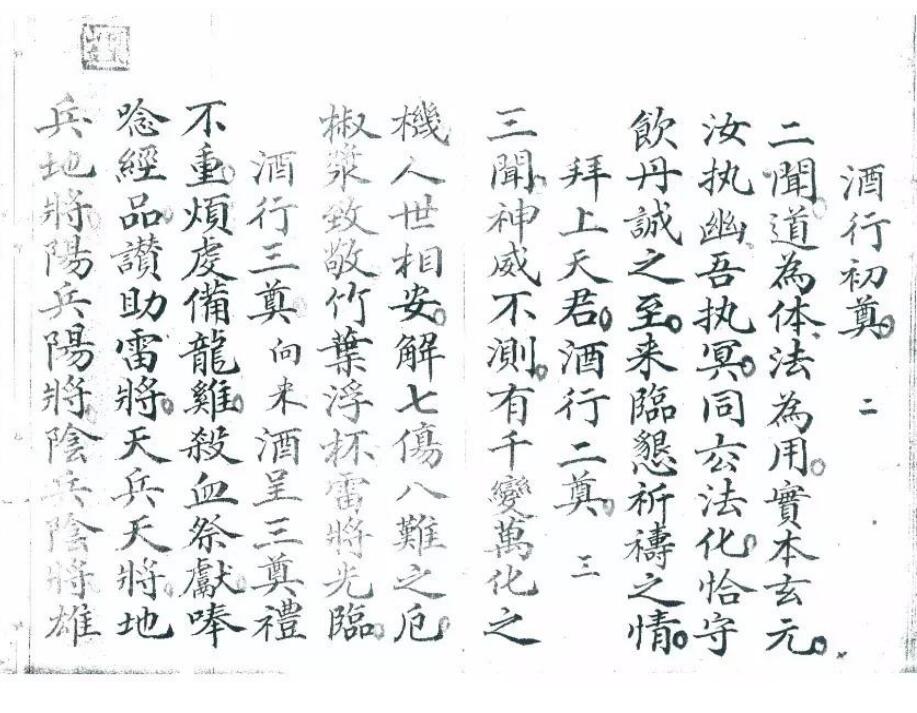 酒行初奠。 二
二聞。道為体。法為用。實本玄元。
汝执幽吾执冥。同玄法化。恰守
飲丹誠之至。来臨懇祈禱之情。
拜上天君。酒行二奠。 三
三聞。神威不測。有千變萬化之
機。人世相安。解七傷八難之厄。
椒漿致敬。竹葉浮杯。雷將光臨。
酒行三奠。向来酒呈三奠禮
不重煩。虔備龍雞。殺血祭獻。唪
唸經品。讃助雷將。天兵天將。地
兵地將。陽兵陽將。陰兵陰將。雄